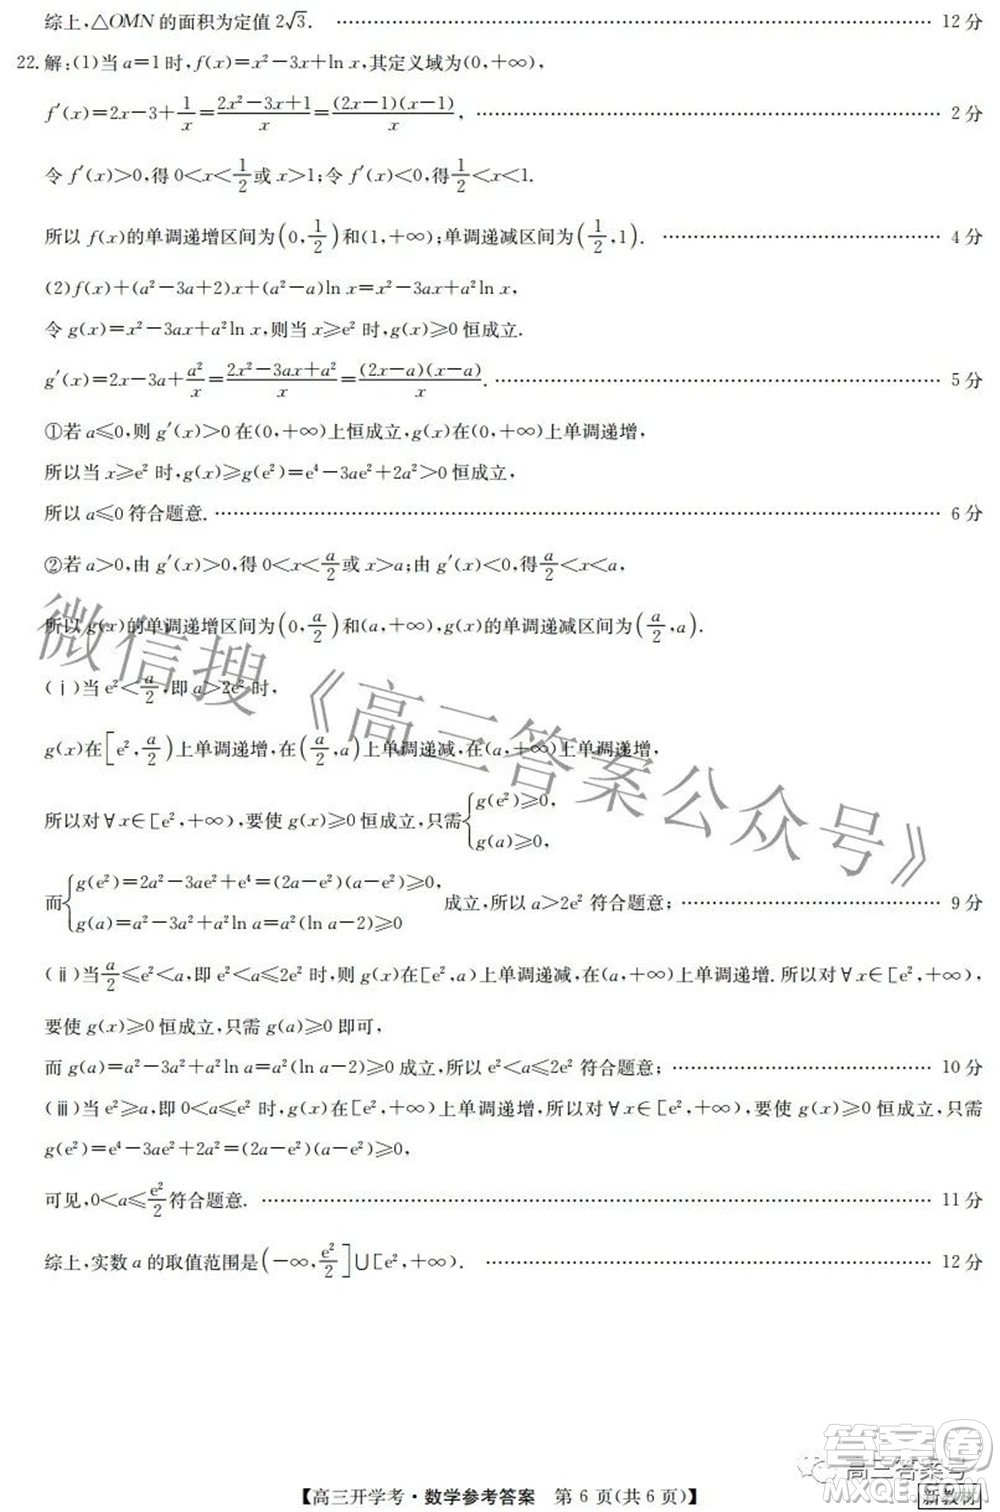 综上,△OMN 的面积为定值 2√3. …… 12 分
22.解:(1)当 a=1 时,f(x)=x²-3x+ln x,其定义域为(0,+∞),
f′(x)=2x-3+1/x=(2x²-3x+1)/x=(2x-1)(x-1)/x, …… 2 分
令 f′(x)>0,得 0<x<1/2或 x>1;令 f′(x)<0,得1/2<x<1.
所以 f(x)的单调递增区间为(0,1/2)和(1,+∞);单调递减区间为(1/2,1). …… 4 分
(2)f(x)+(a²-3a+2)x+(a²-a)ln x=x²-3ax+a²ln x,
令 g(x)=x²-3ax+a²ln x,则当 x⩾e² 时,g(x)⩾0 恒成立.
g′(x)=2x-3a+a²/x=(2x²-3ax+a²)/x=(2x-a)(x-a)/x. …… 5 分
①若 a⩽0,则 g′(x)>0 在(0,+∞)上恒成立,g(x)在(0,+∞)上单调递增,
所以当 x⩾e² 时,g(x)⩾g(e²)=e⁴-3ae²+2a²>0 恒成立,
所以 a⩽0 符合题意. …… 6 分
②若 a>0,由 g′(x)>0,得 0<x<a/2或 x>a;由 g′(x)<0,得a/2<x<a,
所以 g(x)的单调递增区间为(0,a/2)和(a,+∞),g(x)的单调递减区间为(a/2,a).
(ⅰ)当 e²<a/2,即 a>2e² 时,
g(x)在[e²,a/2)上单调递增,在(a/2,a)上单调递减,在(a,+∞)上单调递增,
所以对∀x∈[e²,+∞),要使 g(x)⩾0 恒成立,只需{g(e²)⩾0, g(a)⩾0,
而{g(e²)=2a²-3ae²+e⁴=(2a-e²)(a-e²)⩾0, g(a)=a²-3a²+a²ln a=a²(ln a-2)⩾0 成立,所以 a>2e² 符合题意; …… 9 分
(ⅱ)当a/2⩽e²<a,即 e²<a⩽2e² 时,则 g(x)在[e²,a)上单调递减,在(a,+∞)上单调递增.所以对∀x∈[e²,+∞),
要使 g(x)⩾0 恒成立,只需 g(a)⩾0 即可,
而 g(a)=a²-3a²+a²ln a=a²(ln a-2)⩾0 成立,所以 e²<a⩽2e² 符合题意; …… 10 分
(ⅲ)当 e²⩾a,即 0<a⩽e² 时,g(x)在[e²,+∞)上单调递增,所以对∀x∈[e²,+∞),要使 g(x)⩾0 恒成立,只需
g(e²)=e⁴-3ae²+2a²=(2a-e²)(a-e²)⩾0,
可见,0<a⩽e²/2符合题意. …… 11 分
综上,实数 a 的取值范围是(-∞,e²/2]∪[e²,+∞). …… 12 分
微信搜《高三答案公众号》
【高三开学考·数学参考答案 第 6 页(共 6 页)】
高三答案号
答案圈
MXQE.COM
新教材